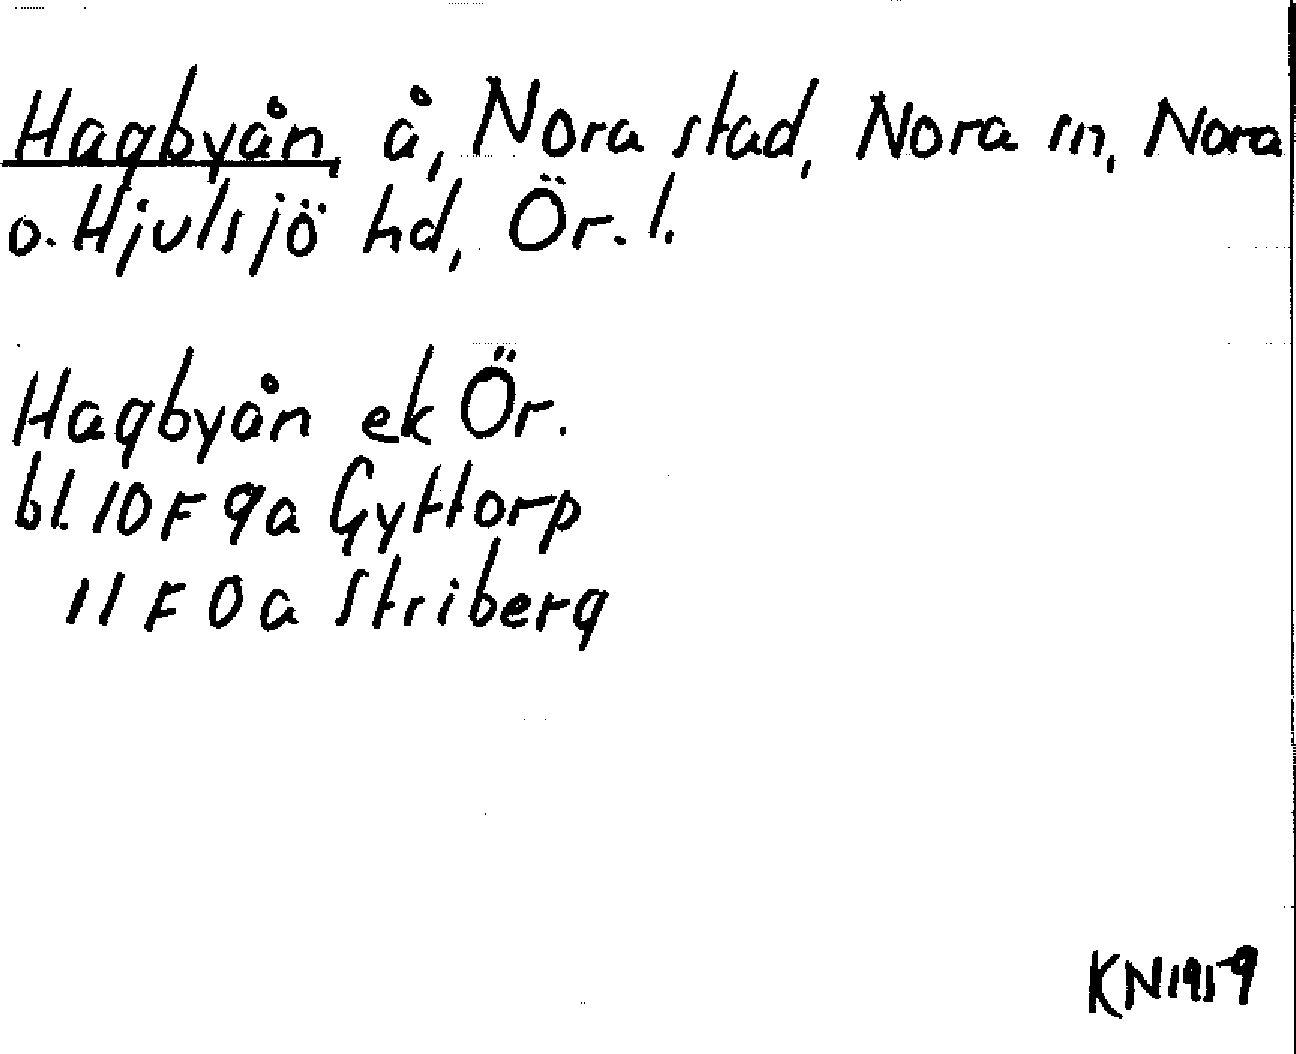 Hagbyån, å, Nora stad, Nora sn, Nora
o. Hjulsjö hd, Ör. l.
Hagbyån ek Ör.
bl. 10 F 9a Gyttorp
11 F 0a Striberg
KN 1959